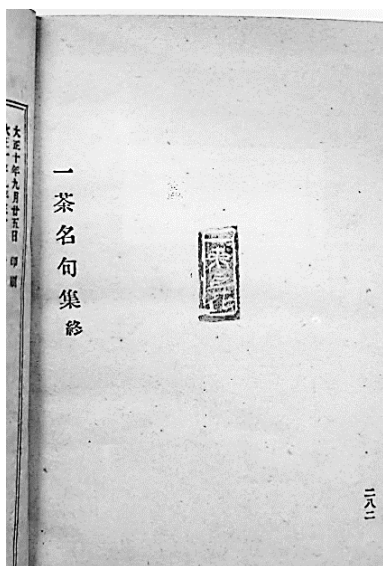 二八二
一茶名句集終
大正十年九月廿五日 印刷